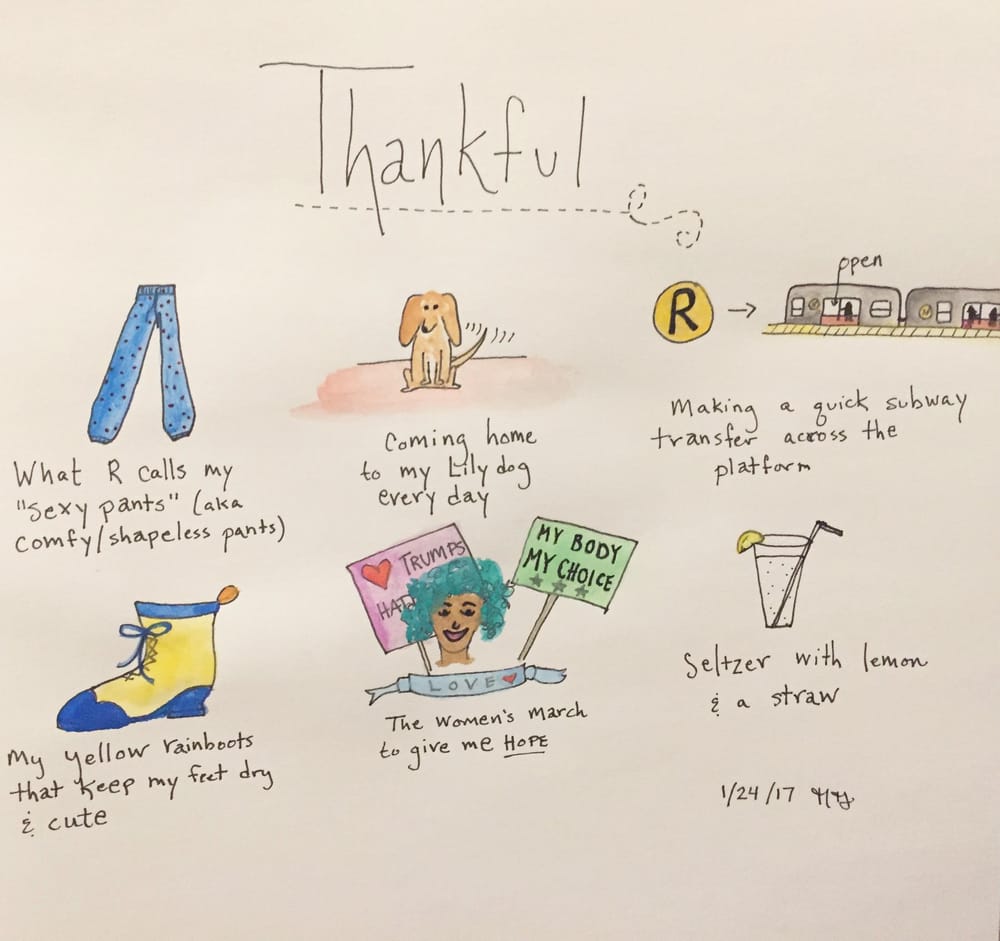 Thankful
open
R
What R calls my
"sexy pants" (aka
comfy/shapeless pants)
Coming home
to my Lily dog
every day
Making a quick subway
transfer across the
platform
♥ TRUMPS
MY BODY
MY CHOICE
LOVE ♥
My yellow rainboots
that keep my feet dry
& cute
The Women's March
to give me HOPE
Seltzer with lemon
& a straw
1/24/17